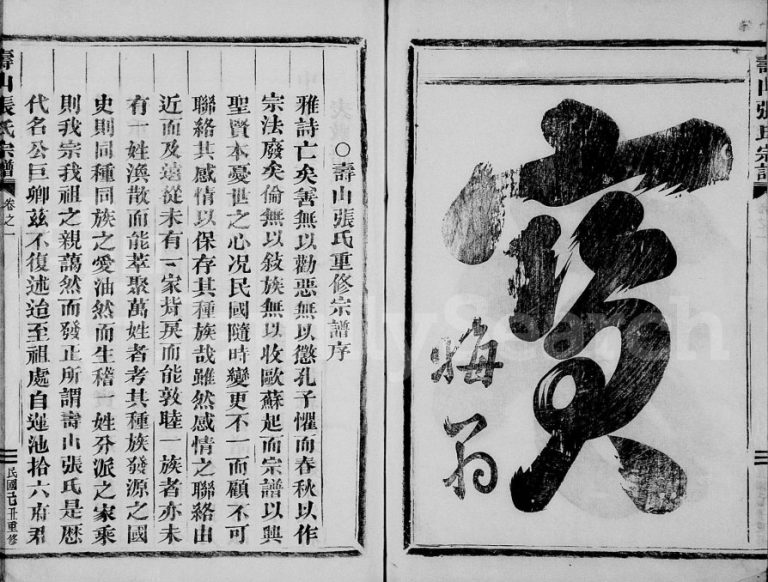 寶
晦翁
壽山張氏宗譜
○壽山張氏重修宗譜序
雅詩亡矣善無以勸惡無以懲孔子懼而春秋以作
宗法廢矣倫無以敍族無以收歐蘇起而宗譜以興
聖賢本憂世之心況民國隨時變更不一而顧不可
聯絡其感情以保存其種族哉雖然感情之聯絡由
近而及遠從未有一家背戾而能敦睦一族者亦未
有一姓渙散而能萃聚萬姓者考其種族發源之國
史則同種同族之愛油然而生稽一姓分派之家乘
則我宗我祖之親藹然而發正所謂壽山張氏是歷
代名公巨卿茲不復述迨至祖處自蓮池拾六府君
壽山張氏宗譜
卷之一
民國己丑重修
FamilySearch